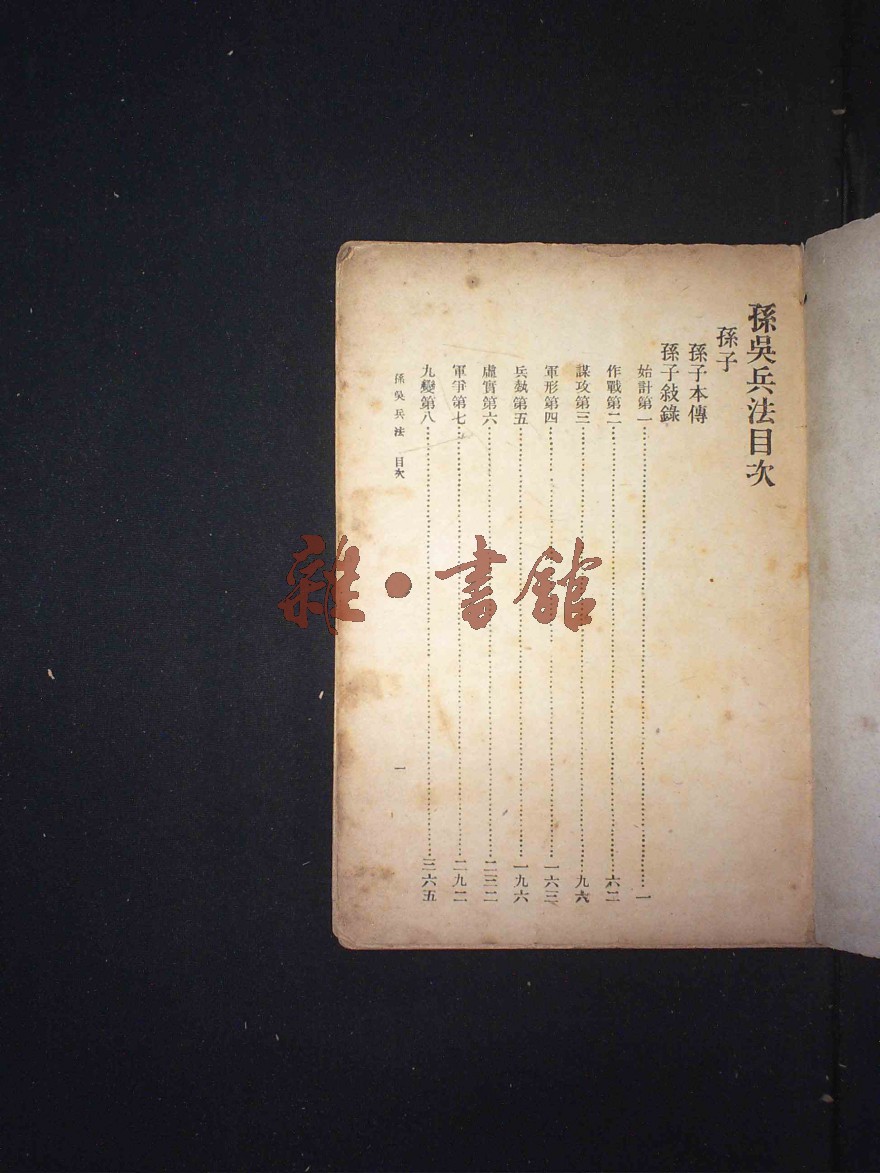 孫吳兵法目次
孫子
孫子本傳
孫子敍錄
始計第一……一
作戰第二……六二
謀攻第三……九六
軍形第四……一六三
兵勢第五……一九六
虛實第六……二三二
軍爭第七……二九二
九變第八……三六五
孫吳兵法 目次
一
雜·書館